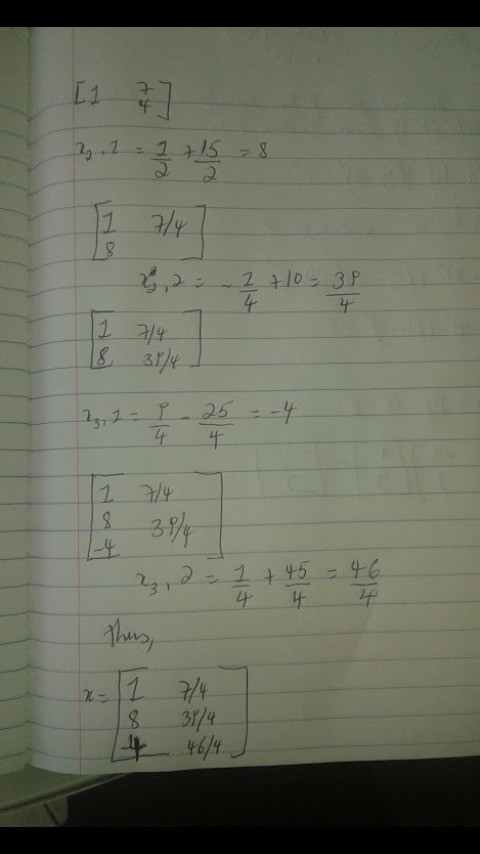 [1 7/4]
x2,1 = 1/2 + 15/2 = 8
[1 7/4
8]
x2,2 = -1/4 + 10 = 39/4
[1 7/4
8 39/4]
x3,1 = 9/4 - 25/4 = -4
[1 7/4
8 39/4
-4]
x3,2 = 1/4 + 45/4 = 46/4
Thus,
x = [1 7/4
8 39/4
-4 46/4]